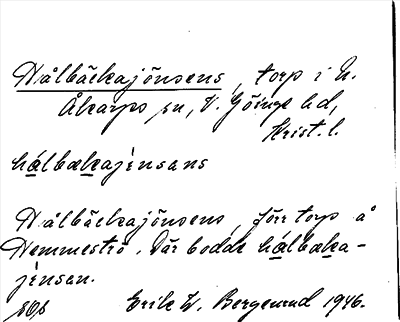 Hålbäckajönsens, torp i N.
Åkarps sn, V. Göinge hd,
Krist. l.
hålbækajènsans
Hålbäckajönsens, förr torp å
Hemmeströ. Där bodde hålbæka-
jènsan.
Erik W. Bergenrud 1946.